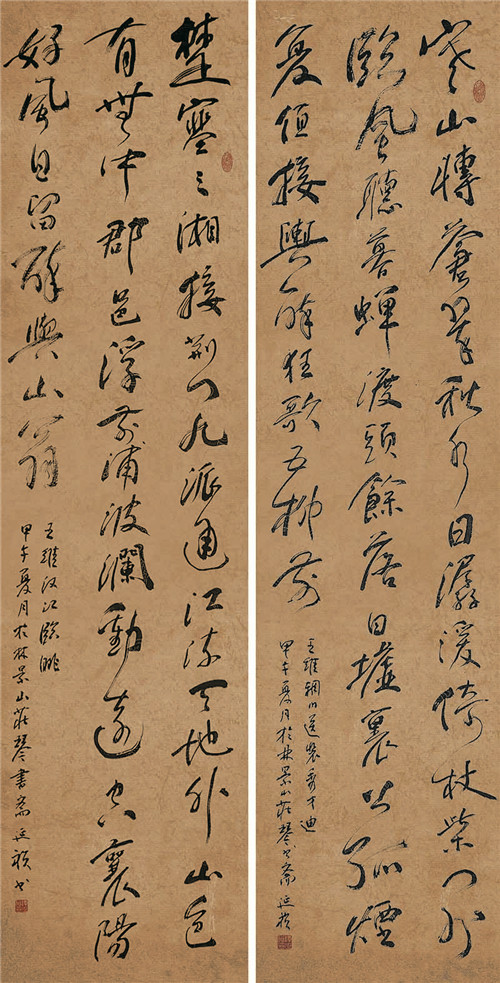 寒山轉蒼翠秋水日潺湲倚杖柴門外
臨風聽暮蟬渡頭餘落日墟裏上孤煙
復值接輿醉狂歌五柳前
王維輞川送裴秀才迪
甲午夏月於林景山莊琴書齋
楚塞三湘接荊門九派通江流天地外山色
有無中郡邑浮前浦波瀾動遠空襄陽
好風日留醉與山翁
王維汉江臨眺
甲午夏月於林景山莊琴書齋